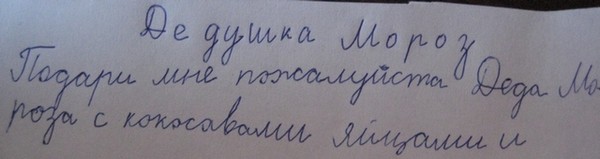 Дедушка Мороз
Подари мне пожалуйста Деда Мо
роза с кокосавами яйцами и